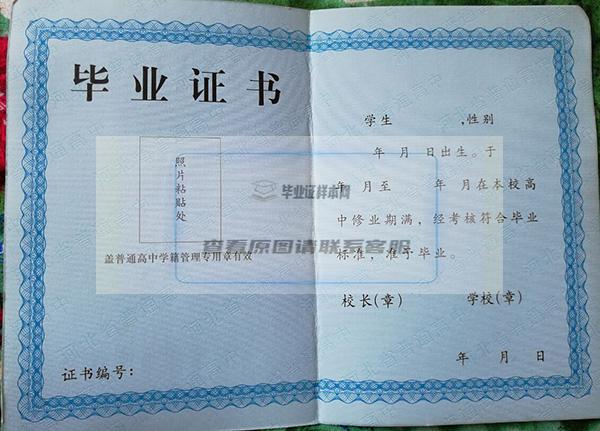 毕业证书
照片粘贴处
盖普通高中学籍管理专用章有效
证书编号：
学生 ,性别
年 月 日出生。于
年 月至 年 月在本校高
中修业期满，经考核符合毕业
标准，准予毕业。
校长(章) 学校(章)
年 月 日
毕业证样本网
查看原图请联系客服